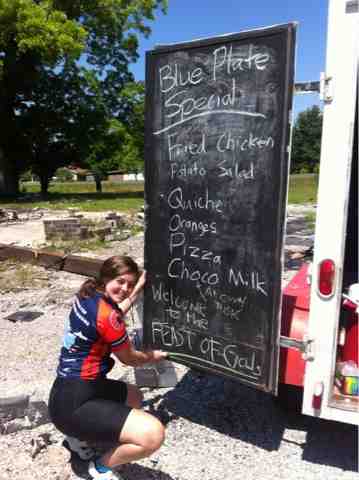 Blue Plate
Special
Fried Chicken
Potato Salad
- Quiche
Oranges
Pizza
Choco Milk
Welcome
to the
FEAST OF Gods